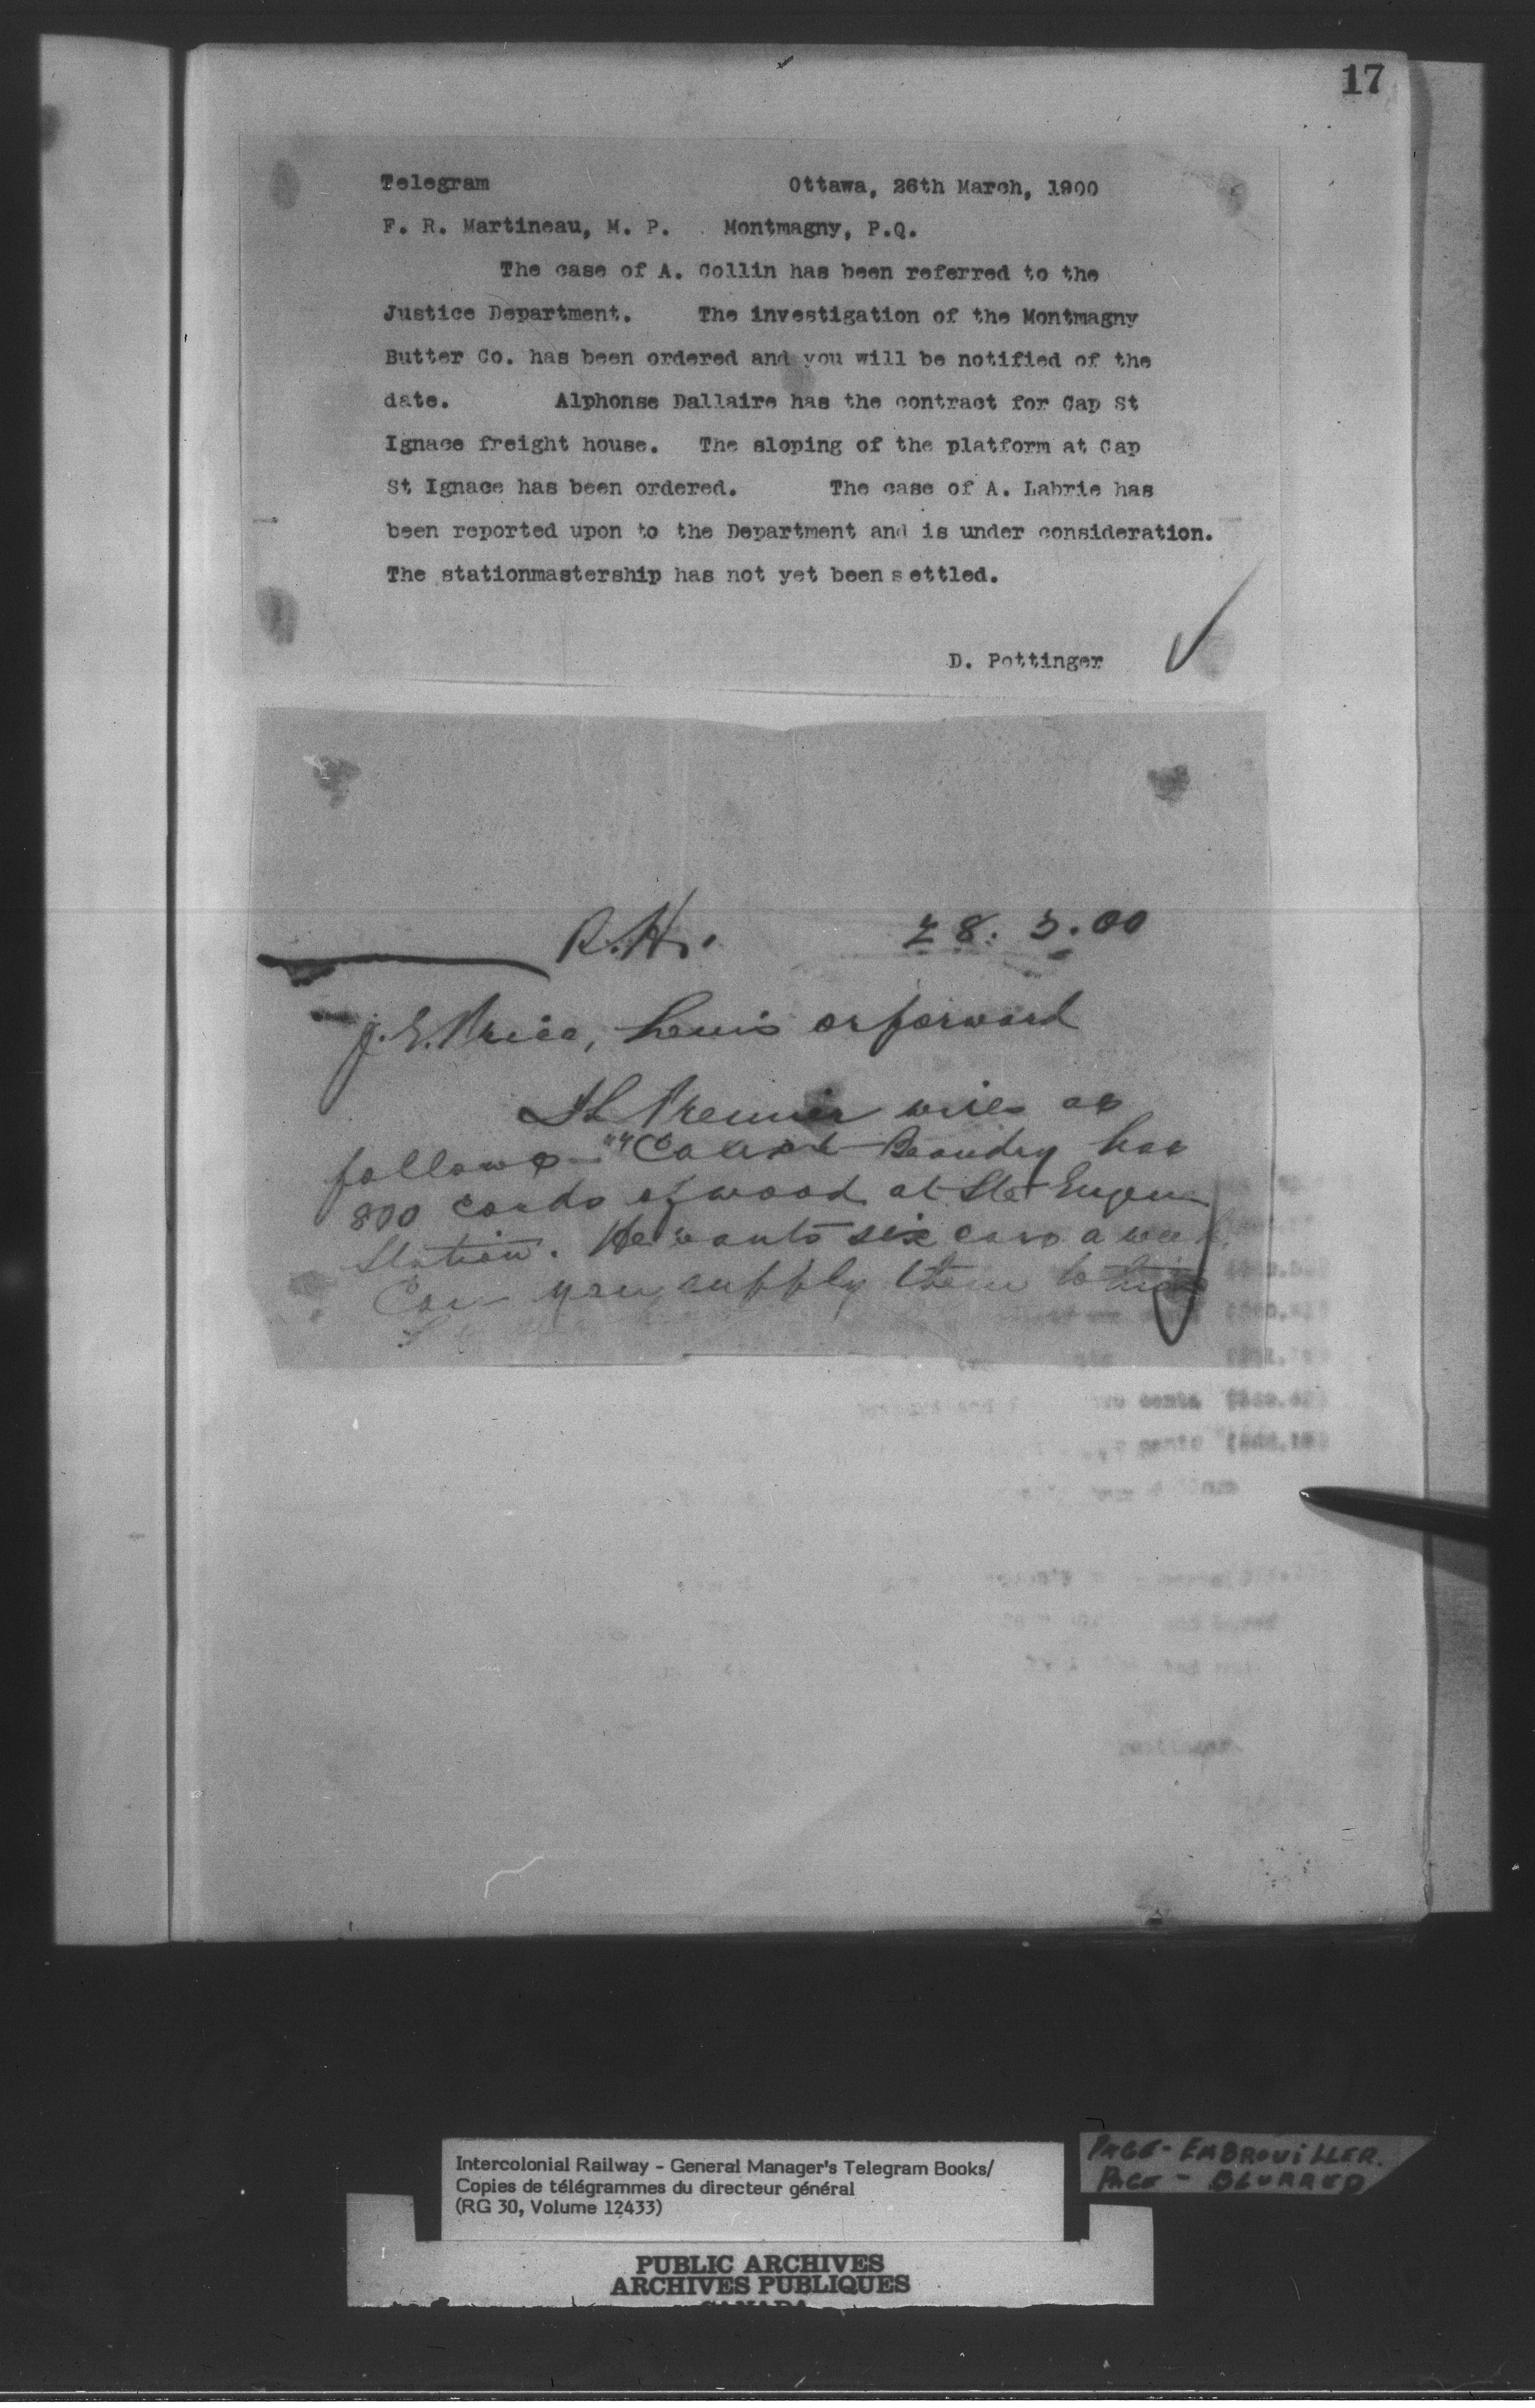 17
Telegram Ottawa, 26th March, 1900
F. R. Martineau, M. P. Montmagny, P.Q.
The case of A. Collin has been referred to the
Justice Department. The investigation of the Montmagny
Butter Co. has been ordered and you will be notified of the
date. Alphonse Dallaire has the contract for Cap St
Ignace freight house. The sloping of the platform at Cap
St Ignace has been ordered. The case of A. Labrie has
been reported upon to the Department and is under consideration.
The stationmastership has not yet been settled.
D. Pottinger
R.H. 28. 3. 00
J. E. Price, Levis or forward
wires as
follows - Beaudry has
800 cords of wood at Ste Eugene
Station. He wants six cars a week.
Can you supply them to him
Intercolonial Railway - General Manager's Telegram Books/
Copies de télégrammes du directeur général
(RG 30, Volume 12433)
PAGE - EMBROUILLER.
PAGE - BLURRED
PUBLIC ARCHIVES
ARCHIVES PUBLIQUES
CANADA